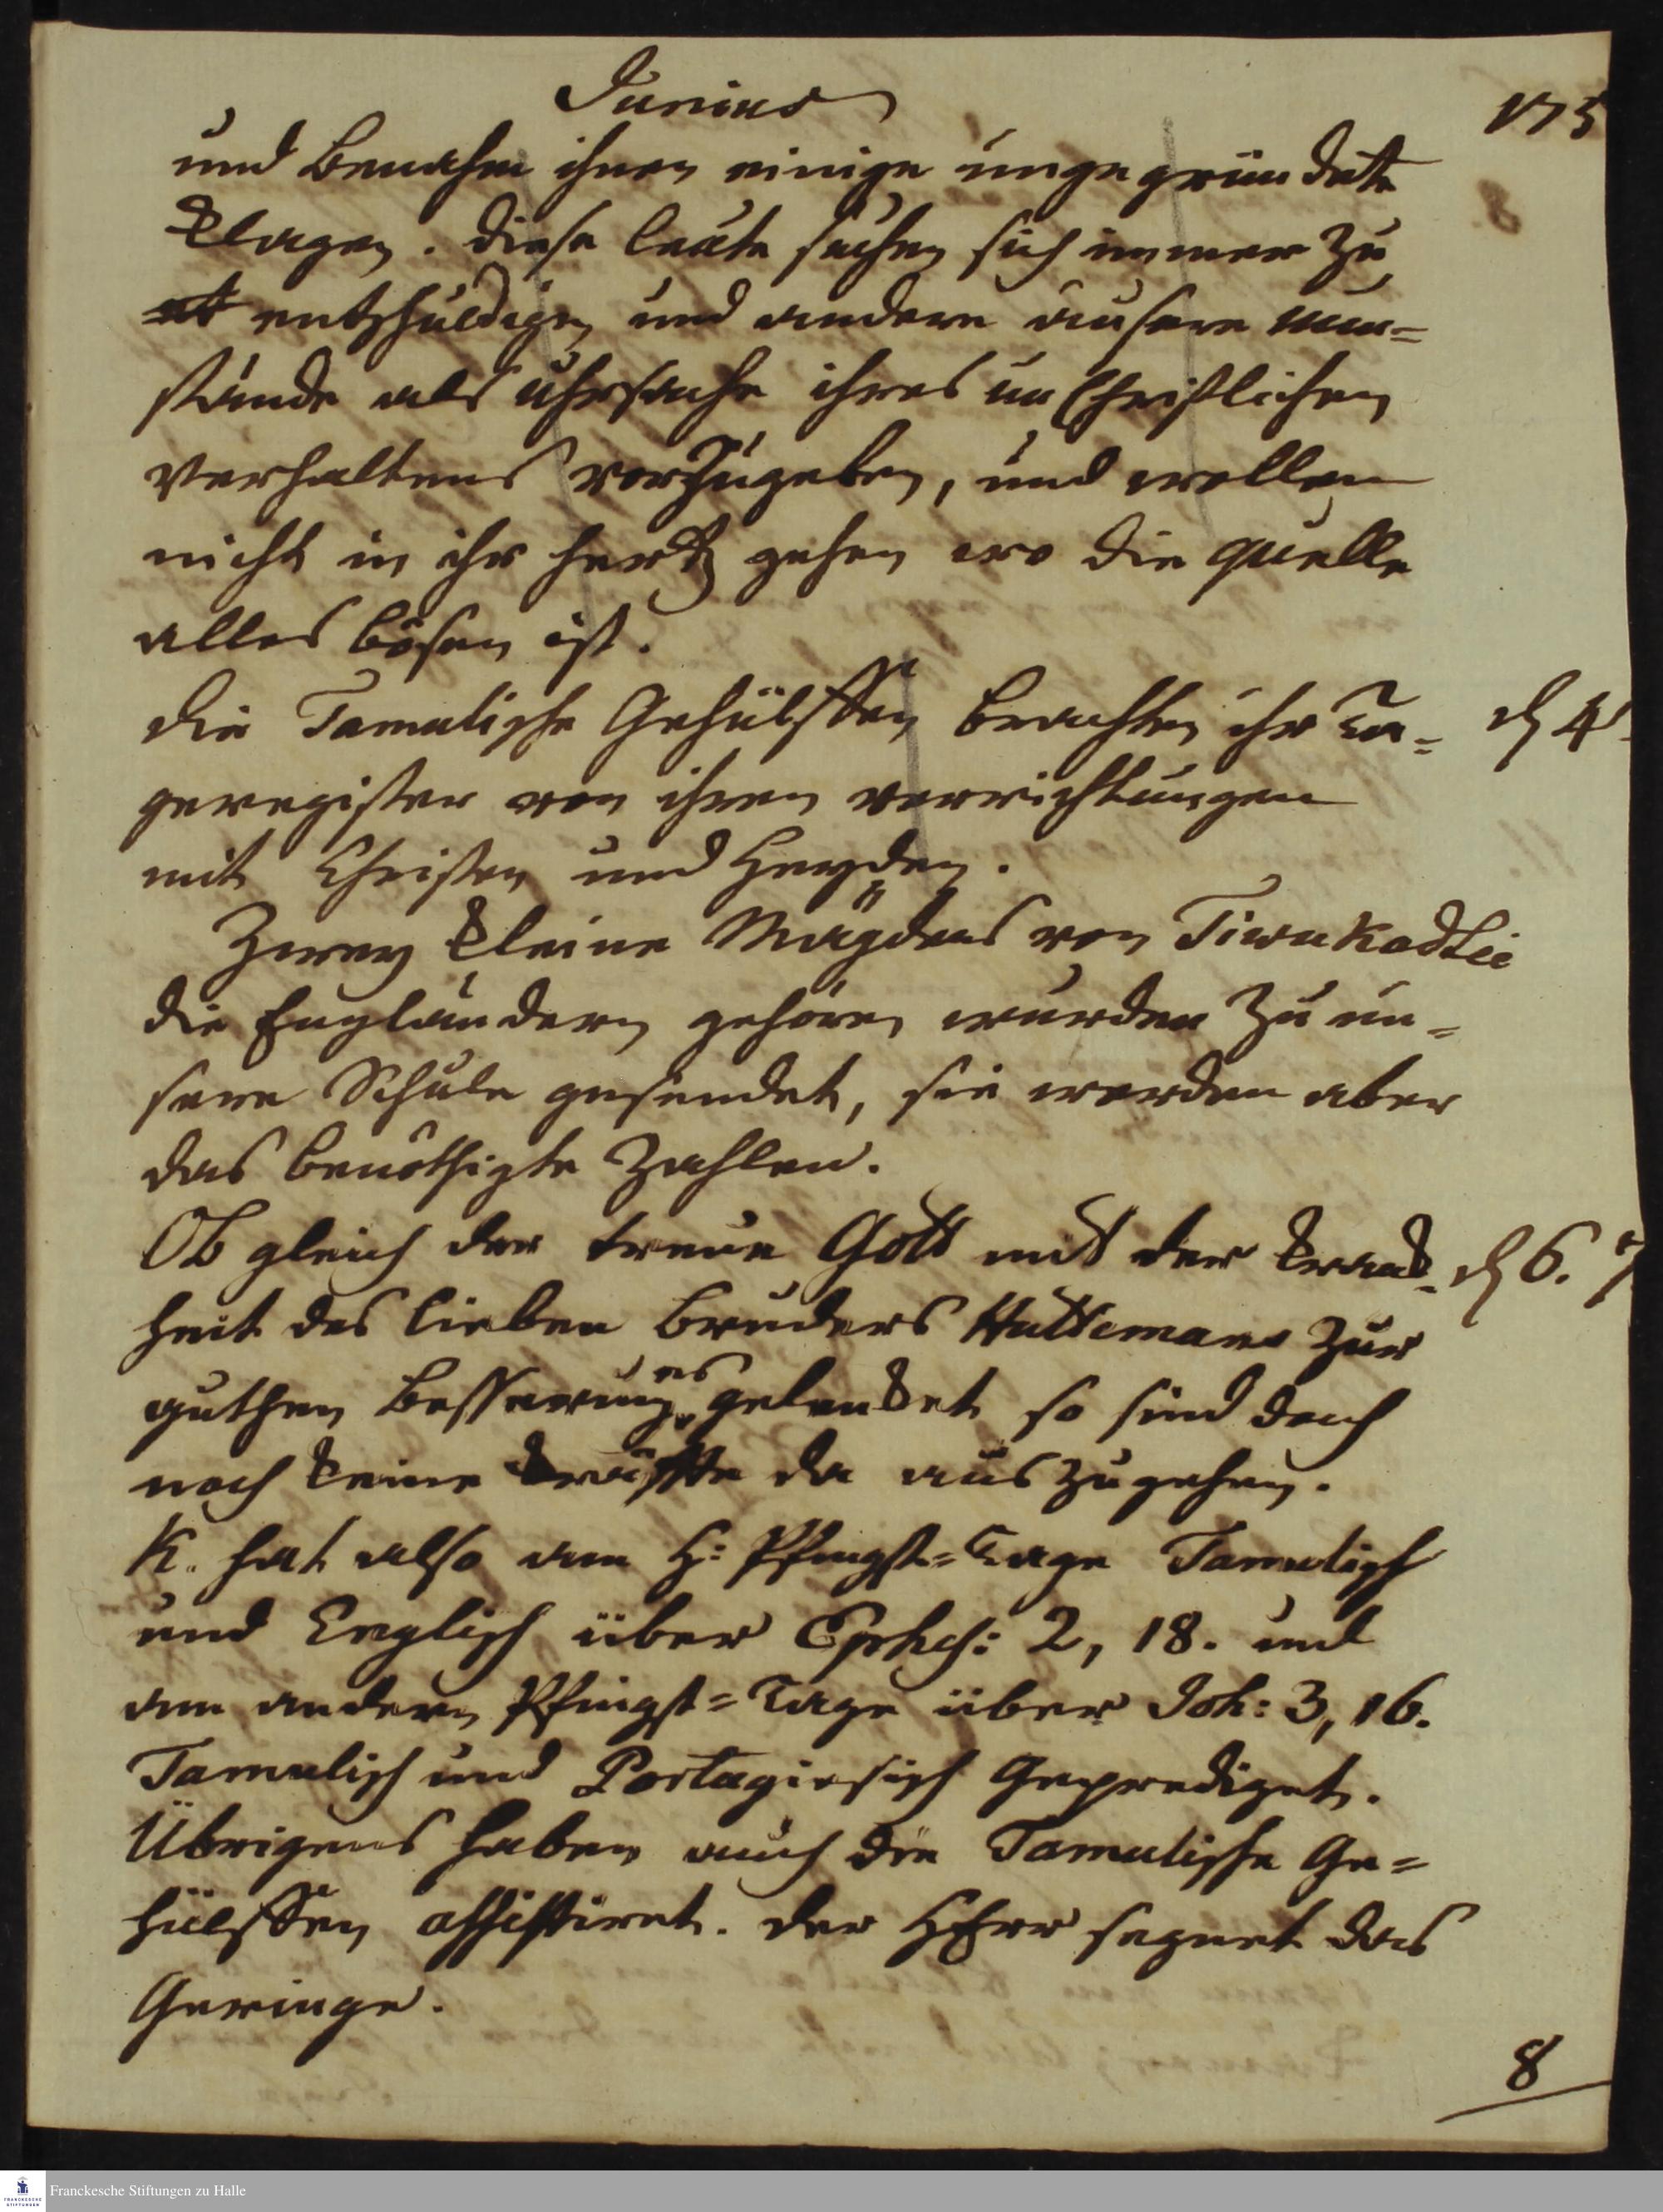 Junius
175
und benahm ihnen einige ungegründete
Klagen. diese leute suchen sich immer zu
et entschuldigen und andere äusere um=
stände als uhrsache ihres un Christlichen
Verhaltens vorzugeben, und wollen
nicht in ihr hertz gehen wo die quelle
alles bösen ist.
die Tamulische Gehülffen brachten ihr Ta= d 4
geregister von ihren verrichtungen
mit Christen und Heyden.
Zwey kleine Mägdens von Tirukadtei
die Engländern gehören wurden zu un=
sere Schule gesendet, sie werden aber
das benöthigte zahlen.
Ob gleich der treue Gott mit der krank= d 6. 7
heit des lieben bruders Huttemans zur
guthen besserung es gelenket so sind doch
noch keine kräffte da auszugehen.
K. hat also am H: Pfingst=tage Tamulisch
und Englisch über Ephes: 2, 18. und
am andern Pfingst=tage über Joh: 3, 16.
Tamulisch und Portugiesisch Geprediget.
Übrigens haben auch die Tamulische Ge=
hülffen assistiret. der HErr segnet das
Geringe.
8
Franckesche Stiftungen zu Halle